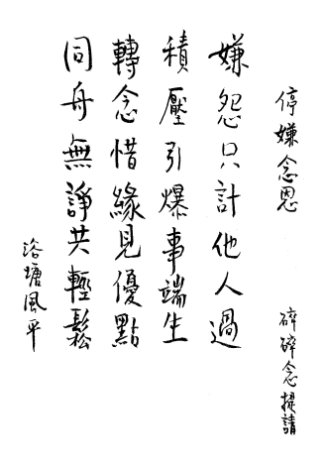 停嫌念恩 碎碎念提請
嫌怨只計他人過
積壓引爆事端生
轉念惜緣見優點
同舟無諍共輕鬆
浴塘風平